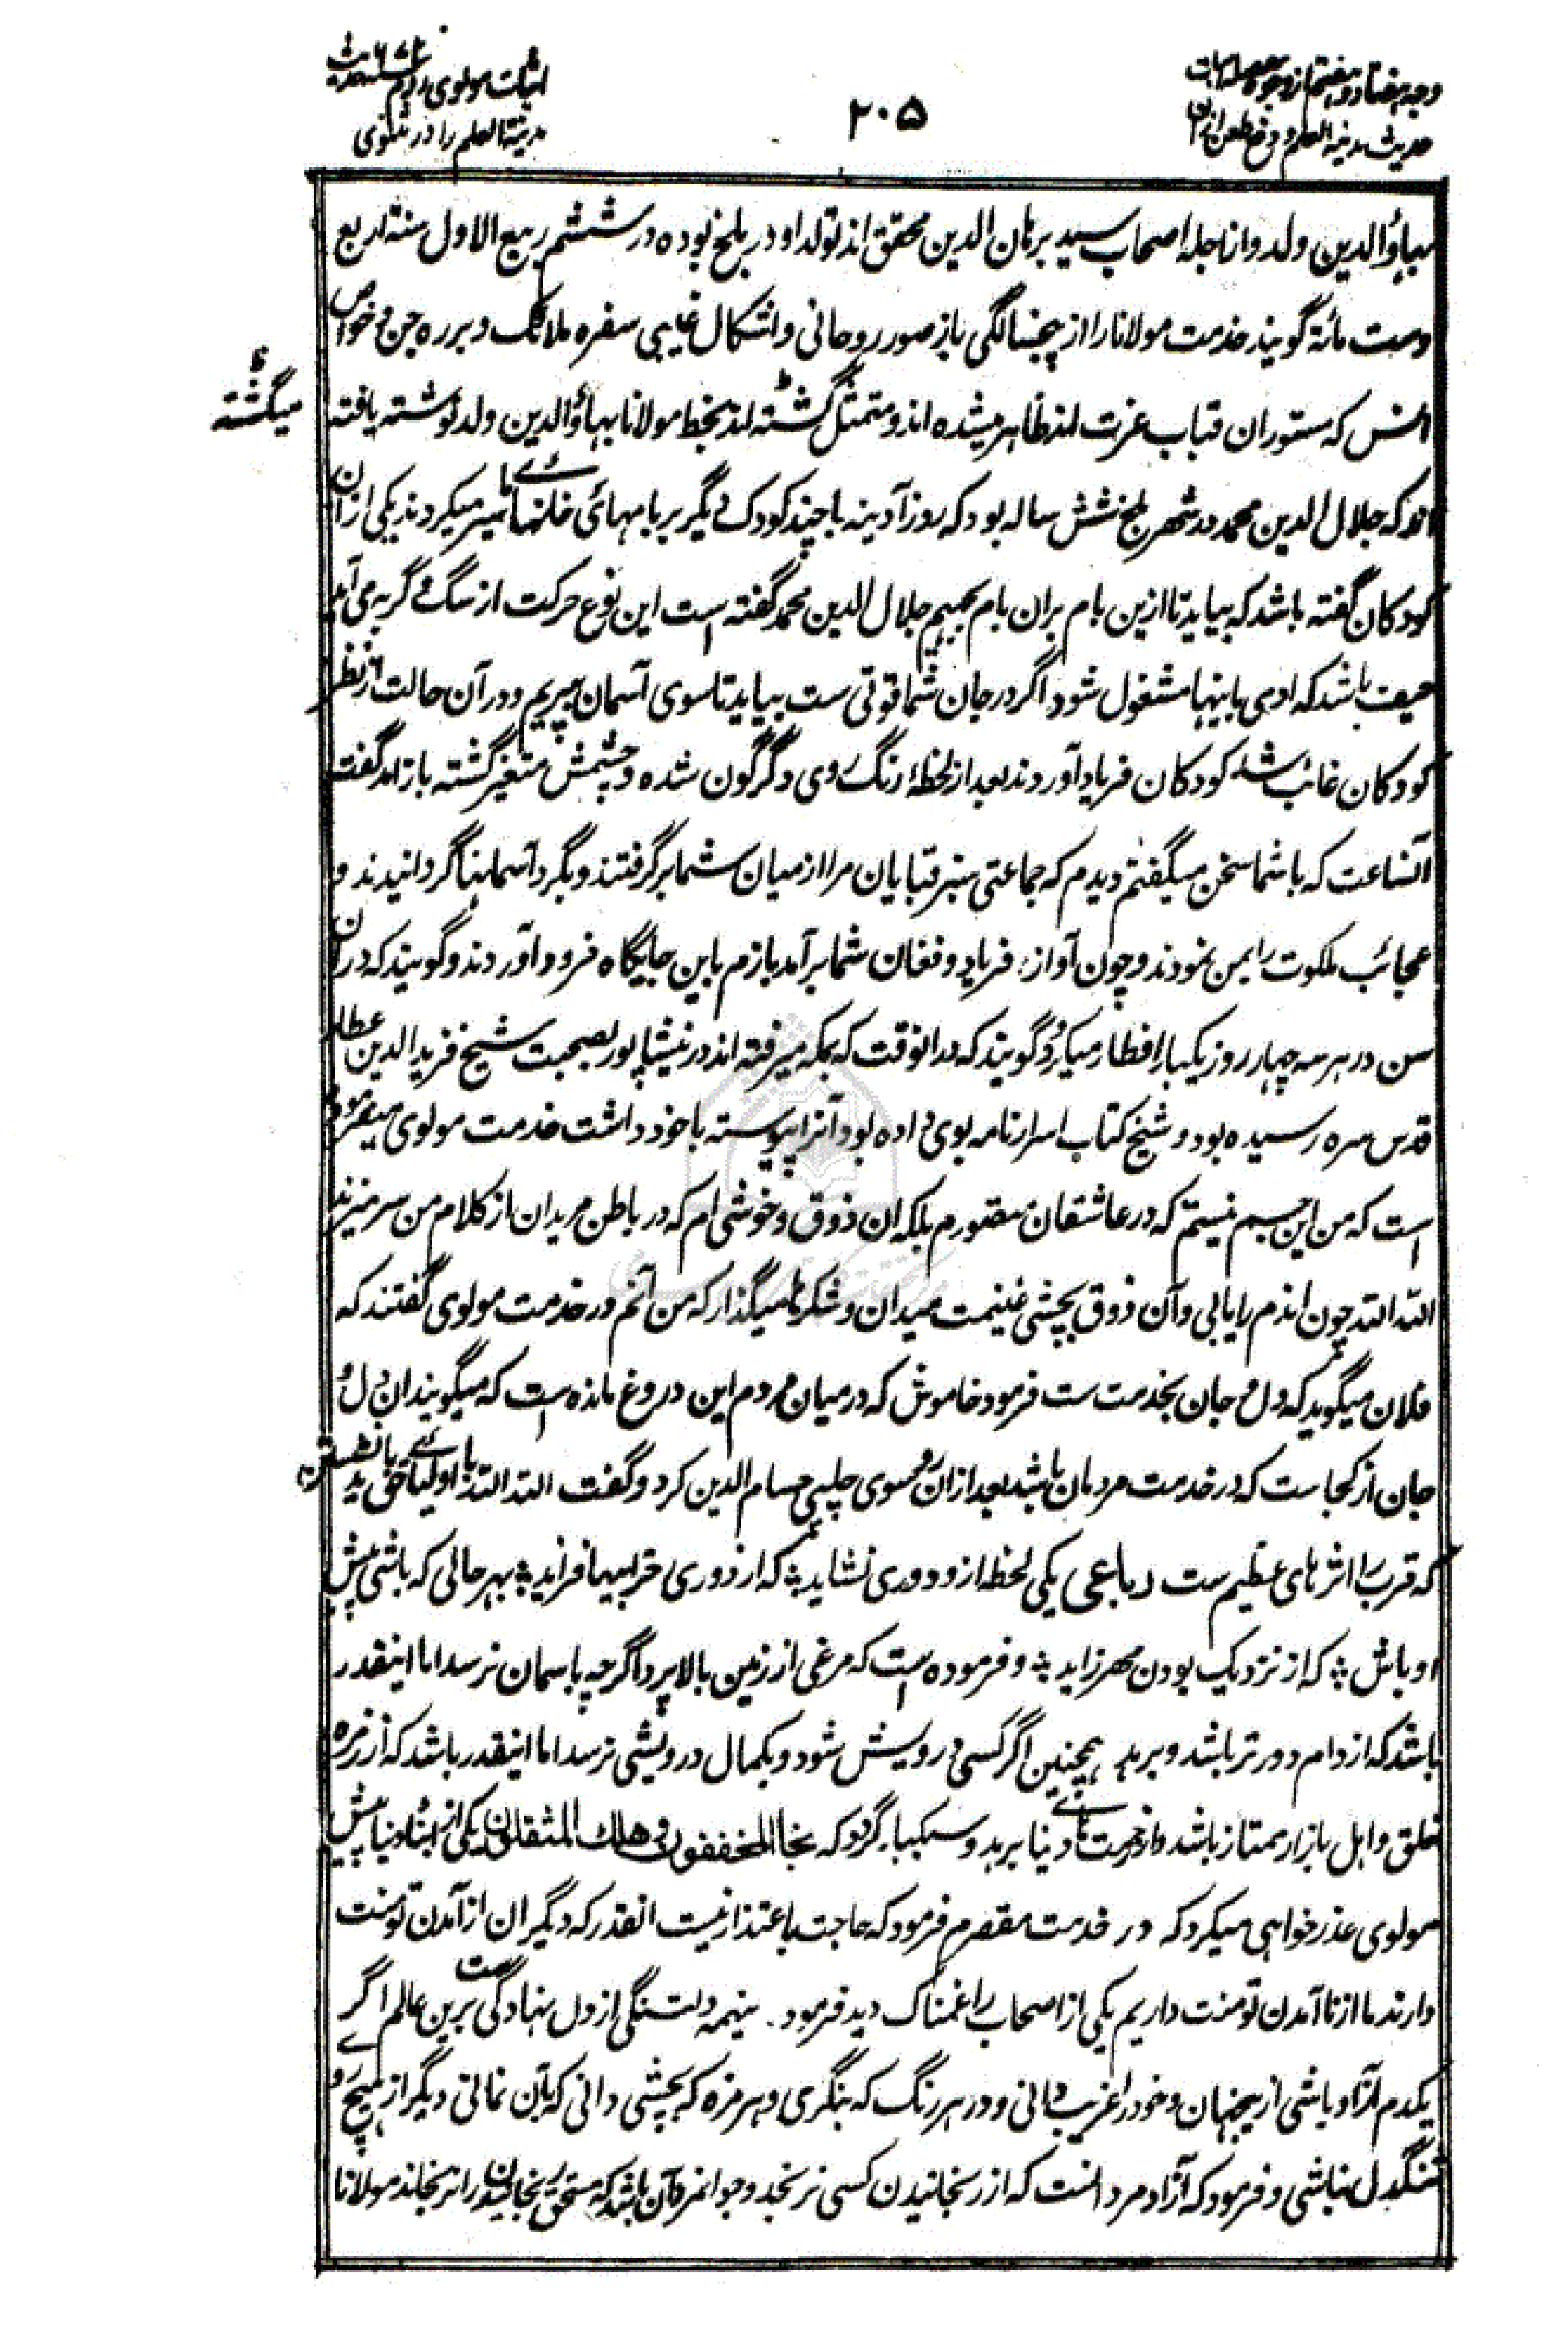 وجه هفتاد و هفتم از وجوه
حدیث مدینة العلم و دفع طعن از ان
۲۰۵
اثبات مولوی روم حدیث
مدینة العلم را در مثنوی
بهاؤ الدین ولد و از اجله اصحاب سید برهان الدین محقق اند تولد او در بلخ بوده در ششم ربیع الاول سنة اربع
وست مائة گویند خدمت مولانا را از پنجسالگی باز صور روحانی و اشکال غیبی سفره ملائک و برره جن و خواص
انس که مستوران قباب عزت اند ظاهر میشده اند و متمثل گشته اند بخط مولانا بهاؤ الدین ولد نوشته یافته
میگشته
اند که جلال الدین محمد در شهر بلخ شش ساله بود که روز آدینه با چند کودک دیگر بر بامهای خانهای ما سیر میکردند یکی از ان
کودکان گفته باشد که بیاید تا ازین بام بران بام بجهیم جلال الدین محمد گفته است این نوع حرکت از سگ و گربه می آید
حیف باشد که ادمی باینها مشغول شود اگر در جان شما قوتی ست بیاید تا سوی آسمان بپریم و در آن حالت از نظر
کودکان غائب شد کودکان فریاد آوردند بعد از لحظهٔ رنگ روی دگرگون شده و چشمش متغیر گشته باز امد گفت
آنساعت که با شما سخن میگفتم دیدم که جماعتی سبز قبایان مرا از میان شما بر گرفتند و بگرد آسمانها گردانیدند و
عجائب ملکوت را بمن نمودند و چون آواز فریاد و فغان شما بر آمد بازم باین جایگاه فرود آوردند و گویند که در ان
سن در هر سه چهار روز یکبار افطار میکرد و گویند که در انوقت که بمکه میرفته اند در نیشاپور بصحبت شیخ فرید الدین عطار
قدس سره رسیده بود و شیخ کتاب اسرار نامه بوی داده بود و آنرا پیوسته با خود داشت خدمت مولوی میفرموده
است که من این جسم نیستم که در عاشقان منظورم بلکه ان ذوق و خوشی ام که در باطن مریدان از کلام من سر میزند
الله الله چون اندم را یابی و آن ذوق بچشی غنیمت میدان و شکرها میگذار که من آنم در خدمت مولوی گفتند که
فلان میگوید که دل و جان بخدمت ست فرمود خاموش که در میان مردم این دروغ مانده است که میگویند ان دل و
جان از کجا ست که در خدمت مردمان باشد بعد ازان روی سوی چلپی حسام الدین کرد و گفت الله الله با اولیای حق باید نشست
که قرب را اثرهای عظیم ست رباعی یکی لحظه ازو دوری نشاید ؞ که از دوری خرابیها فزاید ؞ بهر حالی که باشی پیش
او باش ؞ که از نزدیک بودن مهر زاید ؞ و فرموده است که مرغی از زمین بالا پرد اگرچه باسمان نرسد اما اینقدر
باشد که از دام دورتر باشد و برهد همچنین اگر کسی درویش شود و بکمال درویشی نرسد اما اینقدر باشد که از زمره
خلق و اهل بازار ممتاز باشد و از زحمتهای دنیا برهد و سبکبار گردد که نجا المخففون و هلك المثقلون یکی از ابناء دنیا پیش
مولوی عذر خواهی میکرد که در خدمت مقصرم فرمود که حاجت باعتذار نیست انقدر که دیگران از آمدن تو منت
دارند ما از نا آمدن تو منت داریم یکی از اصحاب را غمناک دید فرمود همه دلتنگی از دل نهادگی برین عالم ست اگر
یکدم آزاد باشی از ینجهان و خود را غریب دانی و در هر رنگ که بنگری و هر مزه که بچشی دانی که بان نمانی دیگر از هیچ رو
تنگدل نباشی و فرمود که آزاد مرد انست که از رنجانیدن کسی نرنجد و جوانمرد آن باشد که مستحق رنجانیدن را نرنجاند مولانا